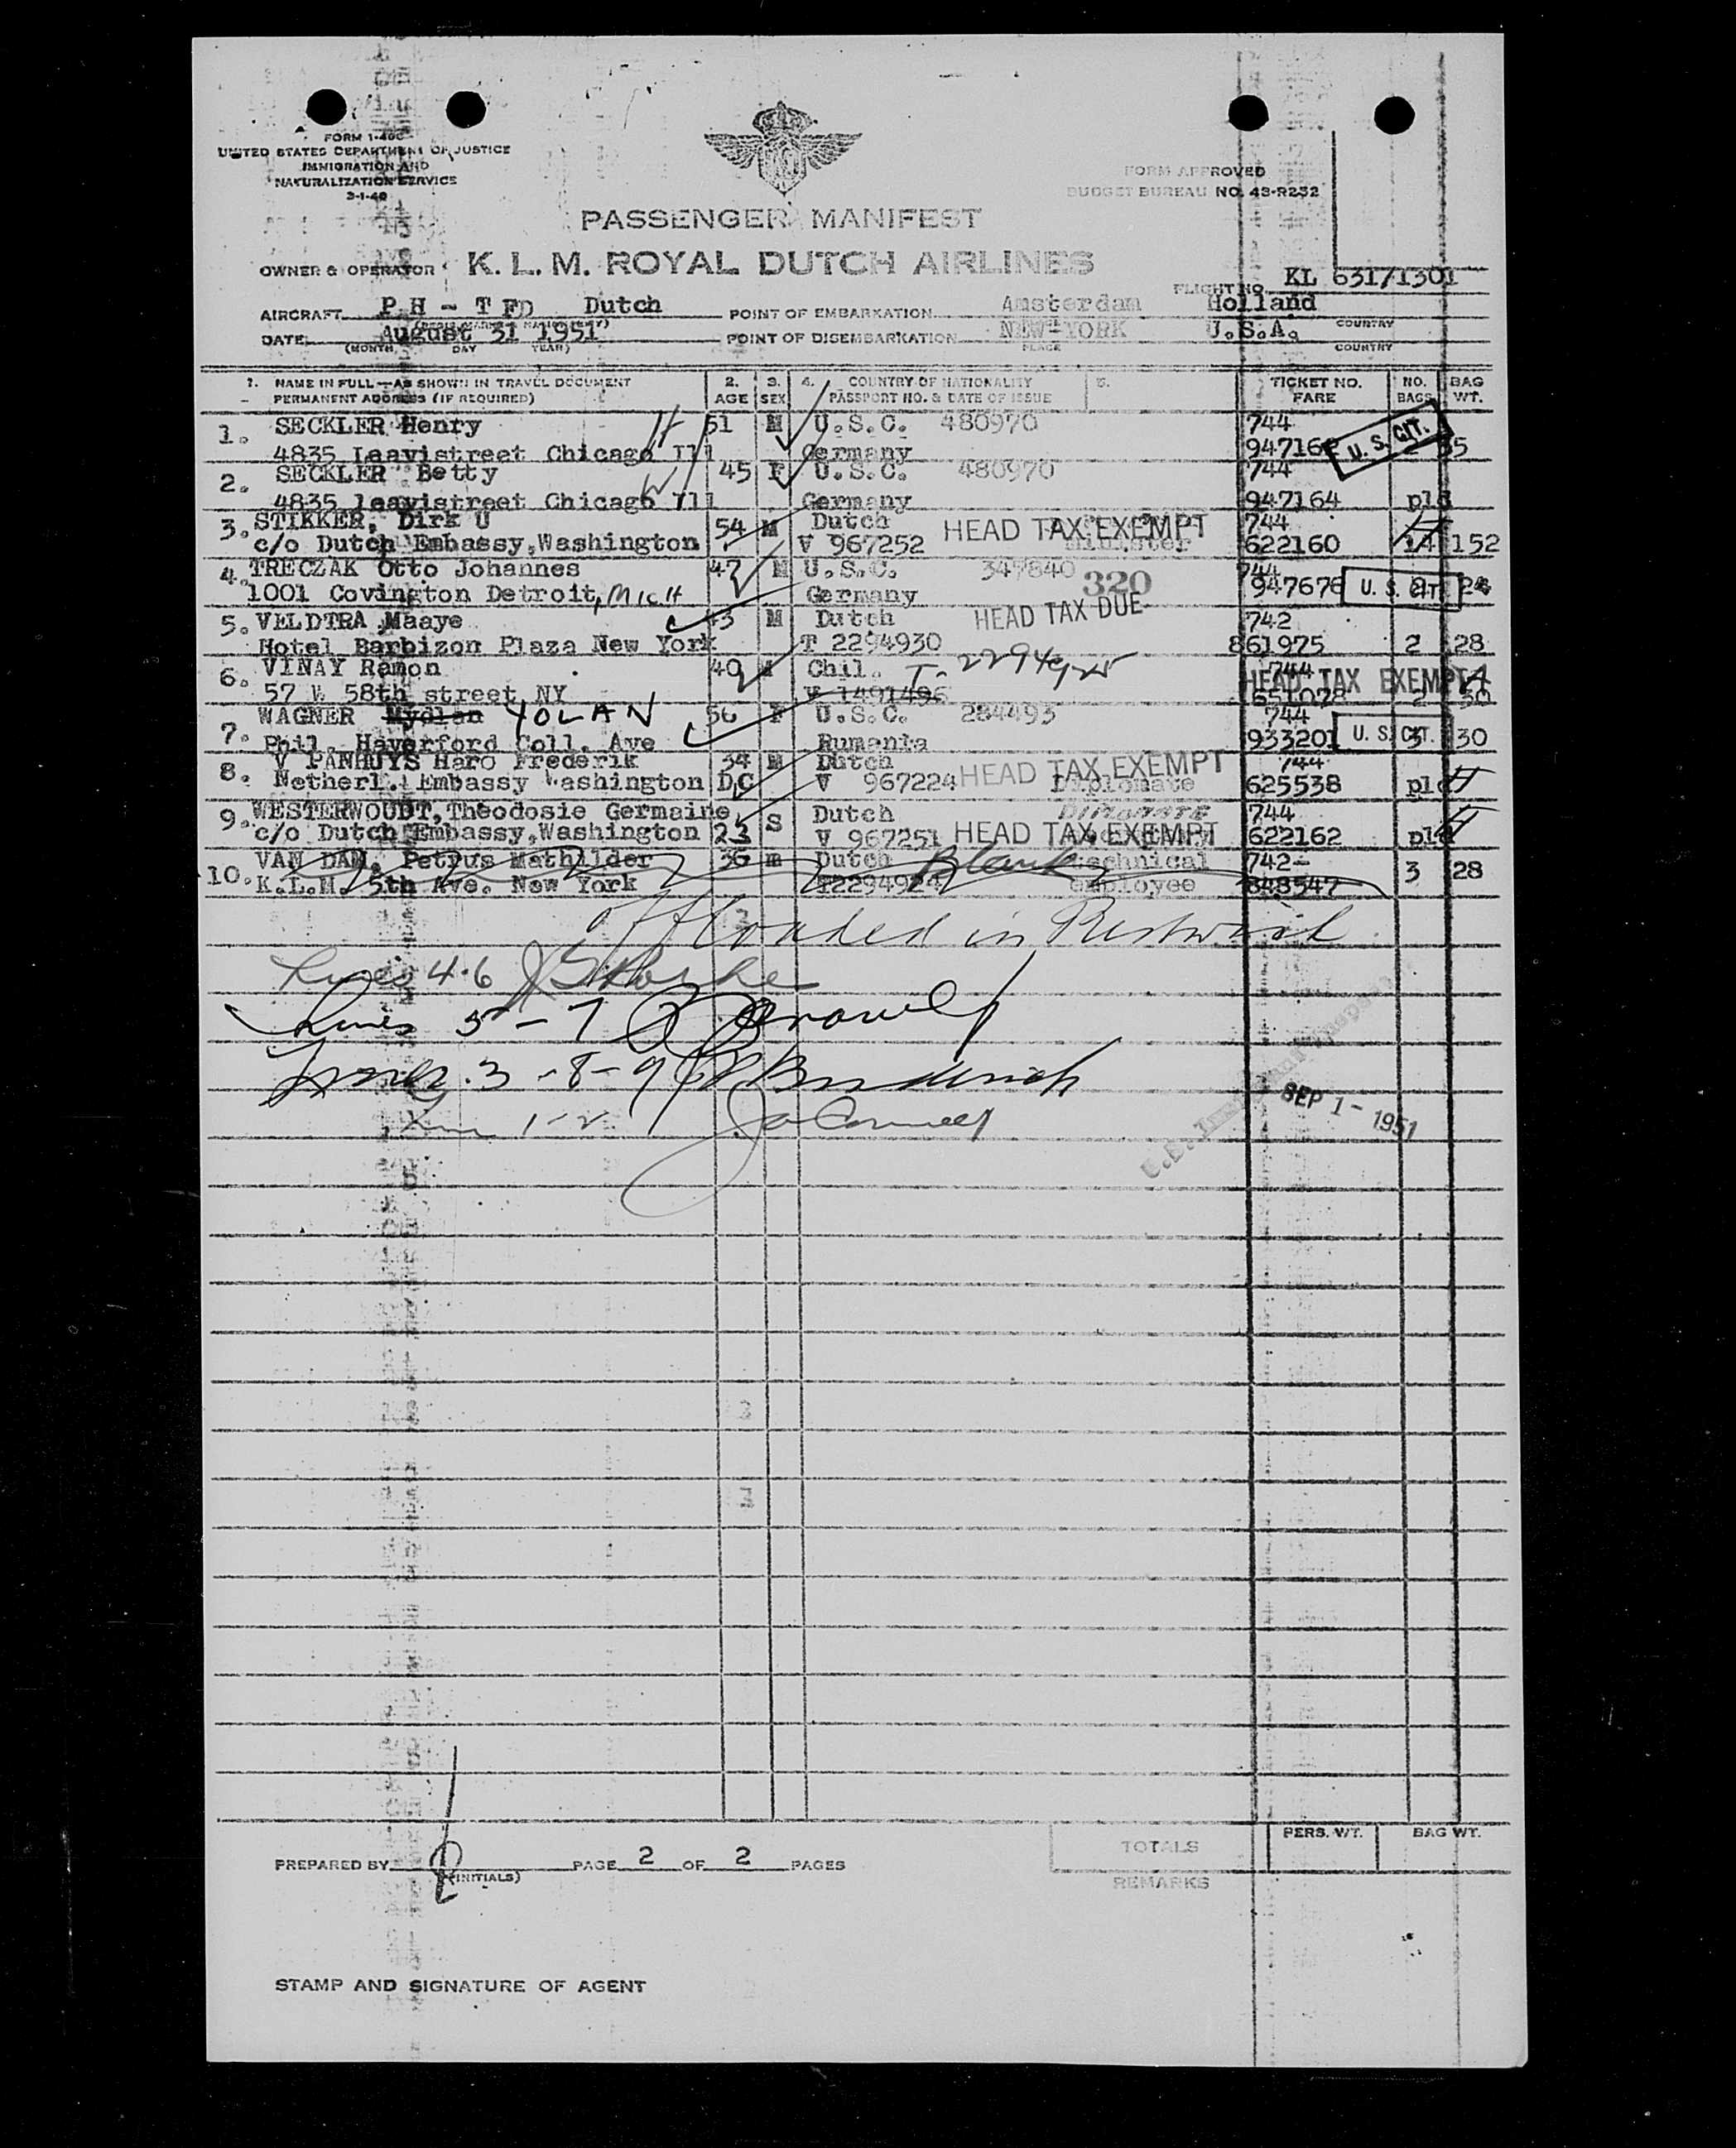 FORM I-466
UNITED STATES DEPARTMENT OF JUSTICE
IMMIGRATION AND
NATURALIZATION SERVICE
FORM APPROVED
BUDGET BUREAU NO. 43-R252
PASSENGER MANIFEST
OWNER & OPERATOR K. L. M. ROYAL DUTCH AIRLINES
FLIGHT NO. KL 631/1301
AIRCRAFT PH - TFD Dutch POINT OF EMBARKATION Amsterdam Holland
DATE August 31 1951 POINT OF DISEMBARKATION NEW-YORK U.S.A.
(MONTH DAY YEAR) PLACE COUNTRY
1. NAME IN FULL—AS SHOWN IN TRAVEL DOCUMENT 2. 3. 4. COUNTRY OF NATIONALITY 5. TICKET NO. NO. BAG
PERMANENT ADDRESS (IF REQUIRED) AGE SEX PASSPORT NO. & DATE OF ISSUE FARE BAGS WT.
1. SECKLER Henry 51 M U.S.C. 480970 744
4835 Leavistreet Chicago Ill Germany U.S. CIT.
2. SECKLER Betty 45 F U.S.C. 480970 744
4835 leavistreet Chicago Ill Germany 947164 pld
3. STIKKER, Dirk U 54 M Dutch HEAD TAX EXEMPT 744
c/o Dutch Embassy, Washington V 967252 Minister 622160 14 152
4. TRECZAK Otto Johannes 47 M U.S.C. 347840 320 744
1001 Covington Detroit, MICH Germany 947678 U.S. CIT.
5. VELDTRA Maaye 43 M Dutch HEAD TAX DUE 742
Hotel Barbizon Plaza New York T 2294930 861975 2 28
6. VINAY Ramon 40 Chil. 744 HEAD TAX EXEMPT
57 W 58th street NY V 1491496 2 30
7. WAGNER Mydlan YOLAN 56 F U.S.C. 284493 744
Phil. Haverford Coll. Ave Rumania 933201 U.S. CIT. 3 30
8. V PANHUYS Haro Frederik 34 M Dutch HEAD TAX EXEMPT 744
Netherl. Embassy Washington DC V 967224 Diplomate 625538 pld
9. WESTERWOUDT, Theodosie Germaine, 23 S Dutch DIPLOMATE 744
c/o Dutch Embassy, Washington V 967251 HEAD TAX EXEMPT 622162 pld
10. VAN DAM, Petrus Mathilder 36 m Dutch Blank technical 742-
K.L.M. 5th Ave. New York T2294924 employee 848547 3 28
offloaded in Prestwick
Lines 4-6
Lines 5-7
Lines 3-8-9
Line 1-2
SEP 1 - 1951
PERS. WT. BAG WT.
TOTALS
PREPARED BY (INITIALS) PAGE 2 OF 2 PAGES
REMARKS
STAMP AND SIGNATURE OF AGENT